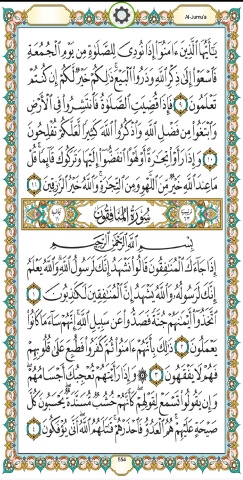 Al-Jumu'a
يَٰٓأَيُّهَا ٱلَّذِينَ ءَامَنُوٓا۟ إِذَا نُودِىَ لِلصَّلَوٰةِ مِن يَوْمِ ٱلْجُمُعَةِ
فَٱسْعَوْا۟ إِلَىٰ ذِكْرِ ٱللَّهِ وَذَرُوا۟ ٱلْبَيْعَ ۚ ذَٰلِكُمْ خَيْرٌ لَّكُمْ إِن كُنتُمْ
تَعْلَمُونَ ٩ فَإِذَا قُضِيَتِ ٱلصَّلَوٰةُ فَٱنتَشِرُوا۟ فِى ٱلْأَرْضِ
وَٱبْتَغُوا۟ مِن فَضْلِ ٱللَّهِ وَٱذْكُرُوا۟ ٱللَّهَ كَثِيرًا لَّعَلَّكُمْ تُفْلِحُونَ
١٠ وَإِذَا رَأَوْا۟ تِجَٰرَةً أَوْ لَهْوًا ٱنفَضُّوٓا۟ إِلَيْهَا وَتَرَكُوكَ قَآئِمًا ۚ قُلْ
مَا عِندَ ٱللَّهِ خَيْرٌ مِّنَ ٱللَّهْوِ وَمِنَ ٱلتِّجَٰرَةِ ۚ وَٱللَّهُ خَيْرُ ٱلرَّٰزِقِينَ ١١
سُورَةُ المُنَافِقُونَ
بِسْمِ ٱللَّهِ ٱلرَّحْمَٰنِ ٱلرَّحِيمِ
إِذَا جَآءَكَ ٱلْمُنَٰفِقُونَ قَالُوا۟ نَشْهَدُ إِنَّكَ لَرَسُولُ ٱللَّهِ ۗ وَٱللَّهُ يَعْلَمُ
إِنَّكَ لَرَسُولُهُۥ وَٱللَّهُ يَشْهَدُ إِنَّ ٱلْمُنَٰفِقِينَ لَكَٰذِبُونَ ١
ٱتَّخَذُوٓا۟ أَيْمَٰنَهُمْ جُنَّةً فَصَدُّوا۟ عَن سَبِيلِ ٱللَّهِ ۚ إِنَّهُمْ سَآءَ مَا كَانُوا۟
يَعْمَلُونَ ٢ ذَٰلِكَ بِأَنَّهُمْ ءَامَنُوا۟ ثُمَّ كَفَرُوا۟ فَطُبِعَ عَلَىٰ قُلُوبِهِمْ
فَهُمْ لَا يَفْقَهُونَ ٣ وَإِذَا رَأَيْتَهُمْ تُعْجِبُكَ أَجْسَامُهُمْ ۖ
وَإِن يَقُولُوا۟ تَسْمَعْ لِقَوْلِهِمْ ۖ كَأَنَّهُمْ خُشُبٌ مُّسَنَّدَةٌ ۖ يَحْسَبُونَ كُلَّ
صَيْحَةٍ عَلَيْهِمْ ۚ هُمُ ٱلْعَدُوُّ فَٱحْذَرْهُمْ ۚ قَٰتَلَهُمُ ٱللَّهُ ۖ أَنَّىٰ يُؤْفَكُونَ ٤
554